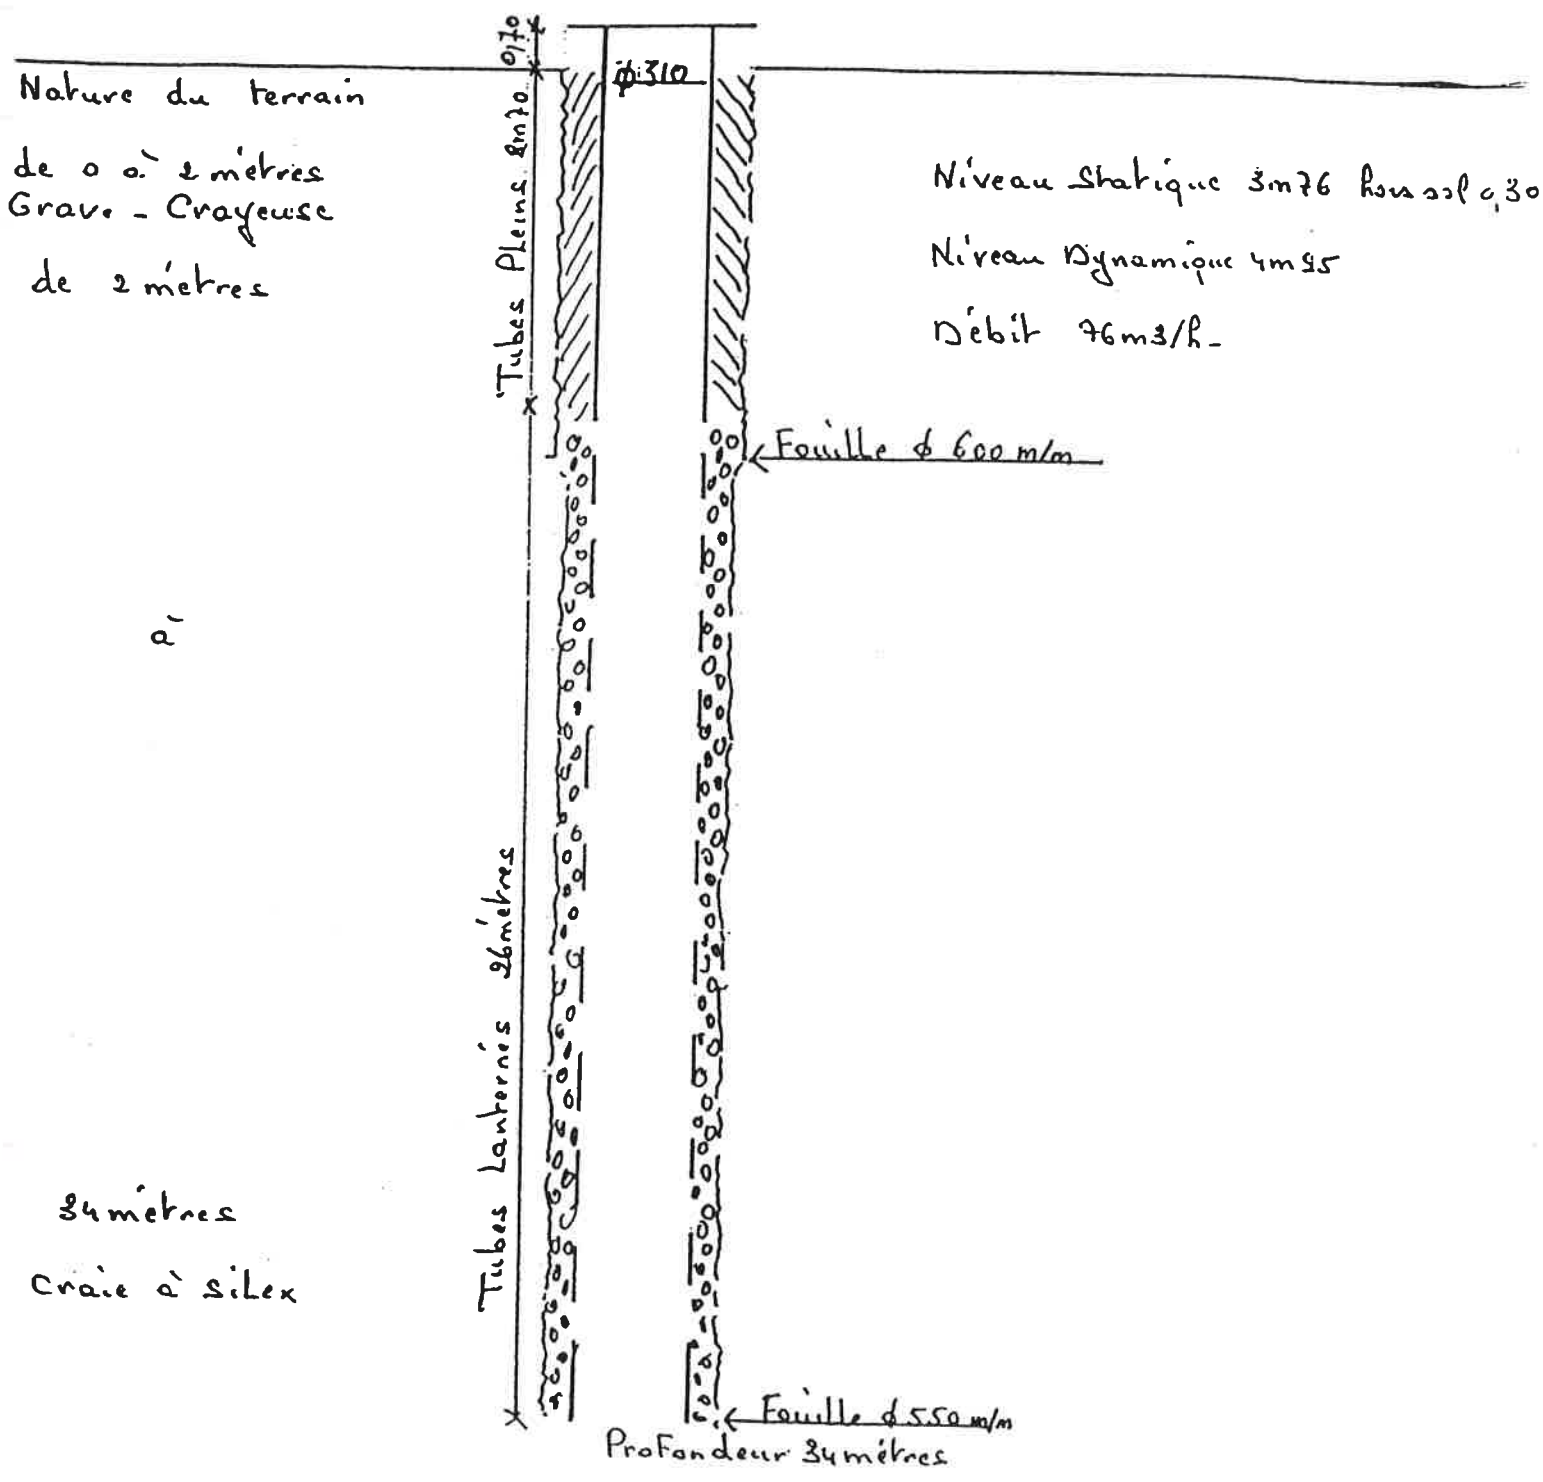 0,70
φ 310
Nature du terrain
de 0 à 2 mètres
Grave - Crayeuse
de 2 mètres
à
34 mètres
Craie à Silex
Tubes Pleins 8m70
Tubes Lanternés 26 mètres
Niveau Statique 3m76 hors sol 0,30
Niveau Dynamique
Débit 76m3/h-
Fouille φ 600 m/m
Fouille φ 550 m/m
Profondeur 34 mètres